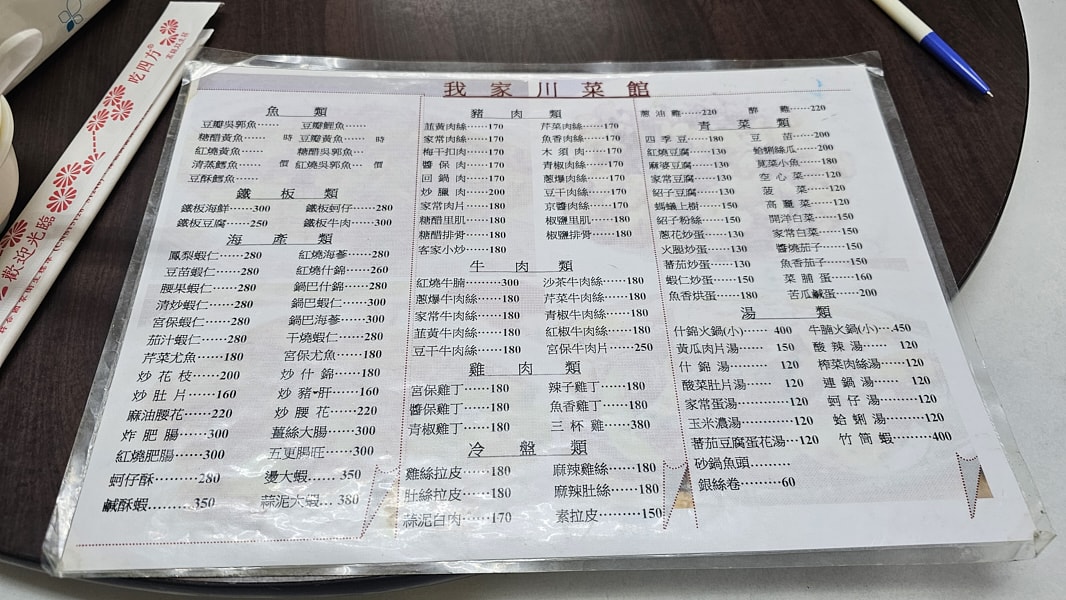 我家川菜館
魚類
豆瓣吳郭魚…… 豆瓣鯉魚……
糖醋黃魚…… 時 豆瓣黃魚…… 時
紅燒黃魚…… 糖醋吳郭魚……
清蒸鱈魚…… 價 紅燒吳郭魚…… 價
豆酥鱈魚……
鐵板類
鐵板海鮮……300 鐵板蚵仔……280
鐵板豆腐……250 鐵板牛肉……300
海產類
鳳梨蝦仁……280 紅燒海蔘……280
豆苗蝦仁……280 紅燒什錦……260
腰果蝦仁……280 鍋巴什錦……280
清炒蝦仁……280 鍋巴蝦仁……300
宮保蝦仁……280 鍋巴海蔘……300
茄汁蝦仁……280 干燒蝦仁……280
芹菜尤魚……180 宮保尤魚……180
炒花枝……200 炒什錦……180
炒肚片……160 炒豬肝……160
麻油腰花……220 炒腰花……220
炸肥腸……300 薑絲大腸……300
紅燒肥腸……300 五更腸旺……300
蚵仔酥………280 燙大蝦…… 350
鹹酥蝦………350 蒜泥大蝦… 380
豬肉類
韮黃肉絲……170 芹菜肉絲……170
家常肉絲……170 魚香肉絲……170
梅干扣肉……170 木須肉……170
醬保肉……170 青椒肉絲……170
回鍋肉……170 蔥爆肉絲……170
炒臘肉……200 豆干肉絲……170
家常肉片……180 京醬肉絲……170
糖醋里肌……180 椒鹽里肌……180
糖醋排骨……180 椒鹽排骨……180
客家小炒……180
牛肉類
紅燒牛腩………300 沙茶牛肉絲……180
蔥爆牛肉絲……180 芹菜牛肉絲……180
家常牛肉絲……180 青椒牛肉絲……180
韮黃牛肉絲……180 紅椒牛肉絲……180
豆干牛肉絲……180 宮保牛肉片……250
雞肉類
宮保雞丁……180 辣子雞丁……180
醬保雞丁……180 魚香雞丁……180
青椒雞丁……180 三杯雞……380
冷盤類
雞絲拉皮……180 麻辣雞絲……180
肚絲拉皮……180 麻辣肚絲……180
蒜泥白肉……170 素拉皮……150
蔥油雞……220 醉雞……220
青菜類
四季豆……180 豆苗……200
紅燒豆腐……130 蛤蜊絲瓜……200
麻婆豆腐……130 莧菜小魚……180
家常豆腐……130 空心菜……120
紹子豆腐……130 菠菜……120
螞蟻上樹……150 高麗菜……120
紹子粉絲……150 開洋白菜……150
蔥花炒蛋……130 家常白菜……150
火腿炒蛋……130 醬燒茄子……150
蕃茄炒蛋……130 魚香茄子……150
蝦仁炒蛋……150 菜脯蛋……160
魚香烘蛋……180 苦瓜鹹蛋……200
湯類
什錦火鍋(小)…… 400 牛腩火鍋(小)…450
黃瓜肉片湯…… 150 酸辣湯…… 120
什錦湯…… 120 榨菜肉絲湯…… 120
酸菜肚片湯…… 120 連鍋湯…… 120
家常蛋湯…… 120 蚵仔湯…… 120
玉米濃湯…… 120 蛤蜊湯…… 120
蕃茄豆腐蛋花湯…120 竹筒蝦………400
砂鍋魚頭………
銀絲卷………60
吃四方
歡迎光臨